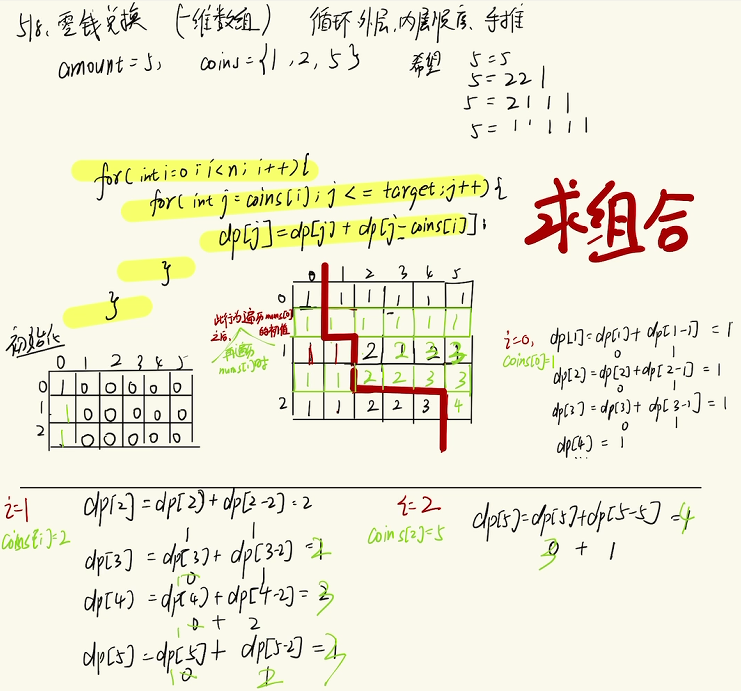 518. 零钱兑换 (一维数组) 循环外层、内层顺序、手推
amount=5, coins={1,2,5} 希望 5=5
5=221
5=2111
5=11111
for(int i=0;i<n;i++){
for(int j=coins[i];j<=target;j++){
dp[j]=dp[j]+dp[j-coins[i]];
}
}
求组合
初始化
0 1 2 3 4 5
0 1 0 0 0 0 0
1 1 0 0 0 0 0
2 1 0 0 0 0 0
此行为遍历nums[0]
之后, 的初值
再遍历
nums[1]时
0 1 2 3 4 5
0 1 1 1 1 1 1
1 1 1 1 1 1
1 1 1 2 2 3 3
1 1 2 2 3 3
2 1 1 2 2 3 4
i=0,
coins[0]=1
dp[1]=dp[1]+dp[1-1]=1
0 1
dp[2]=dp[2]+dp[2-1]=1
0 1
dp[3]=dp[3]+dp[3-1]=1
0 1
dp[4]=1
...
i=1
coins[i]=2
dp[2]=dp[2]+dp[2-2]=2
1 1
dp[3]=dp[3]+dp[3-2]=2
1 1
dp[4]=dp[4]+dp[4-2]=3
1+2
dp[5]=dp[5]+dp[5-2]=3
1 2
i=2
coins[2]=5
dp[5]=dp[5]+dp[5-5]=4
3+1